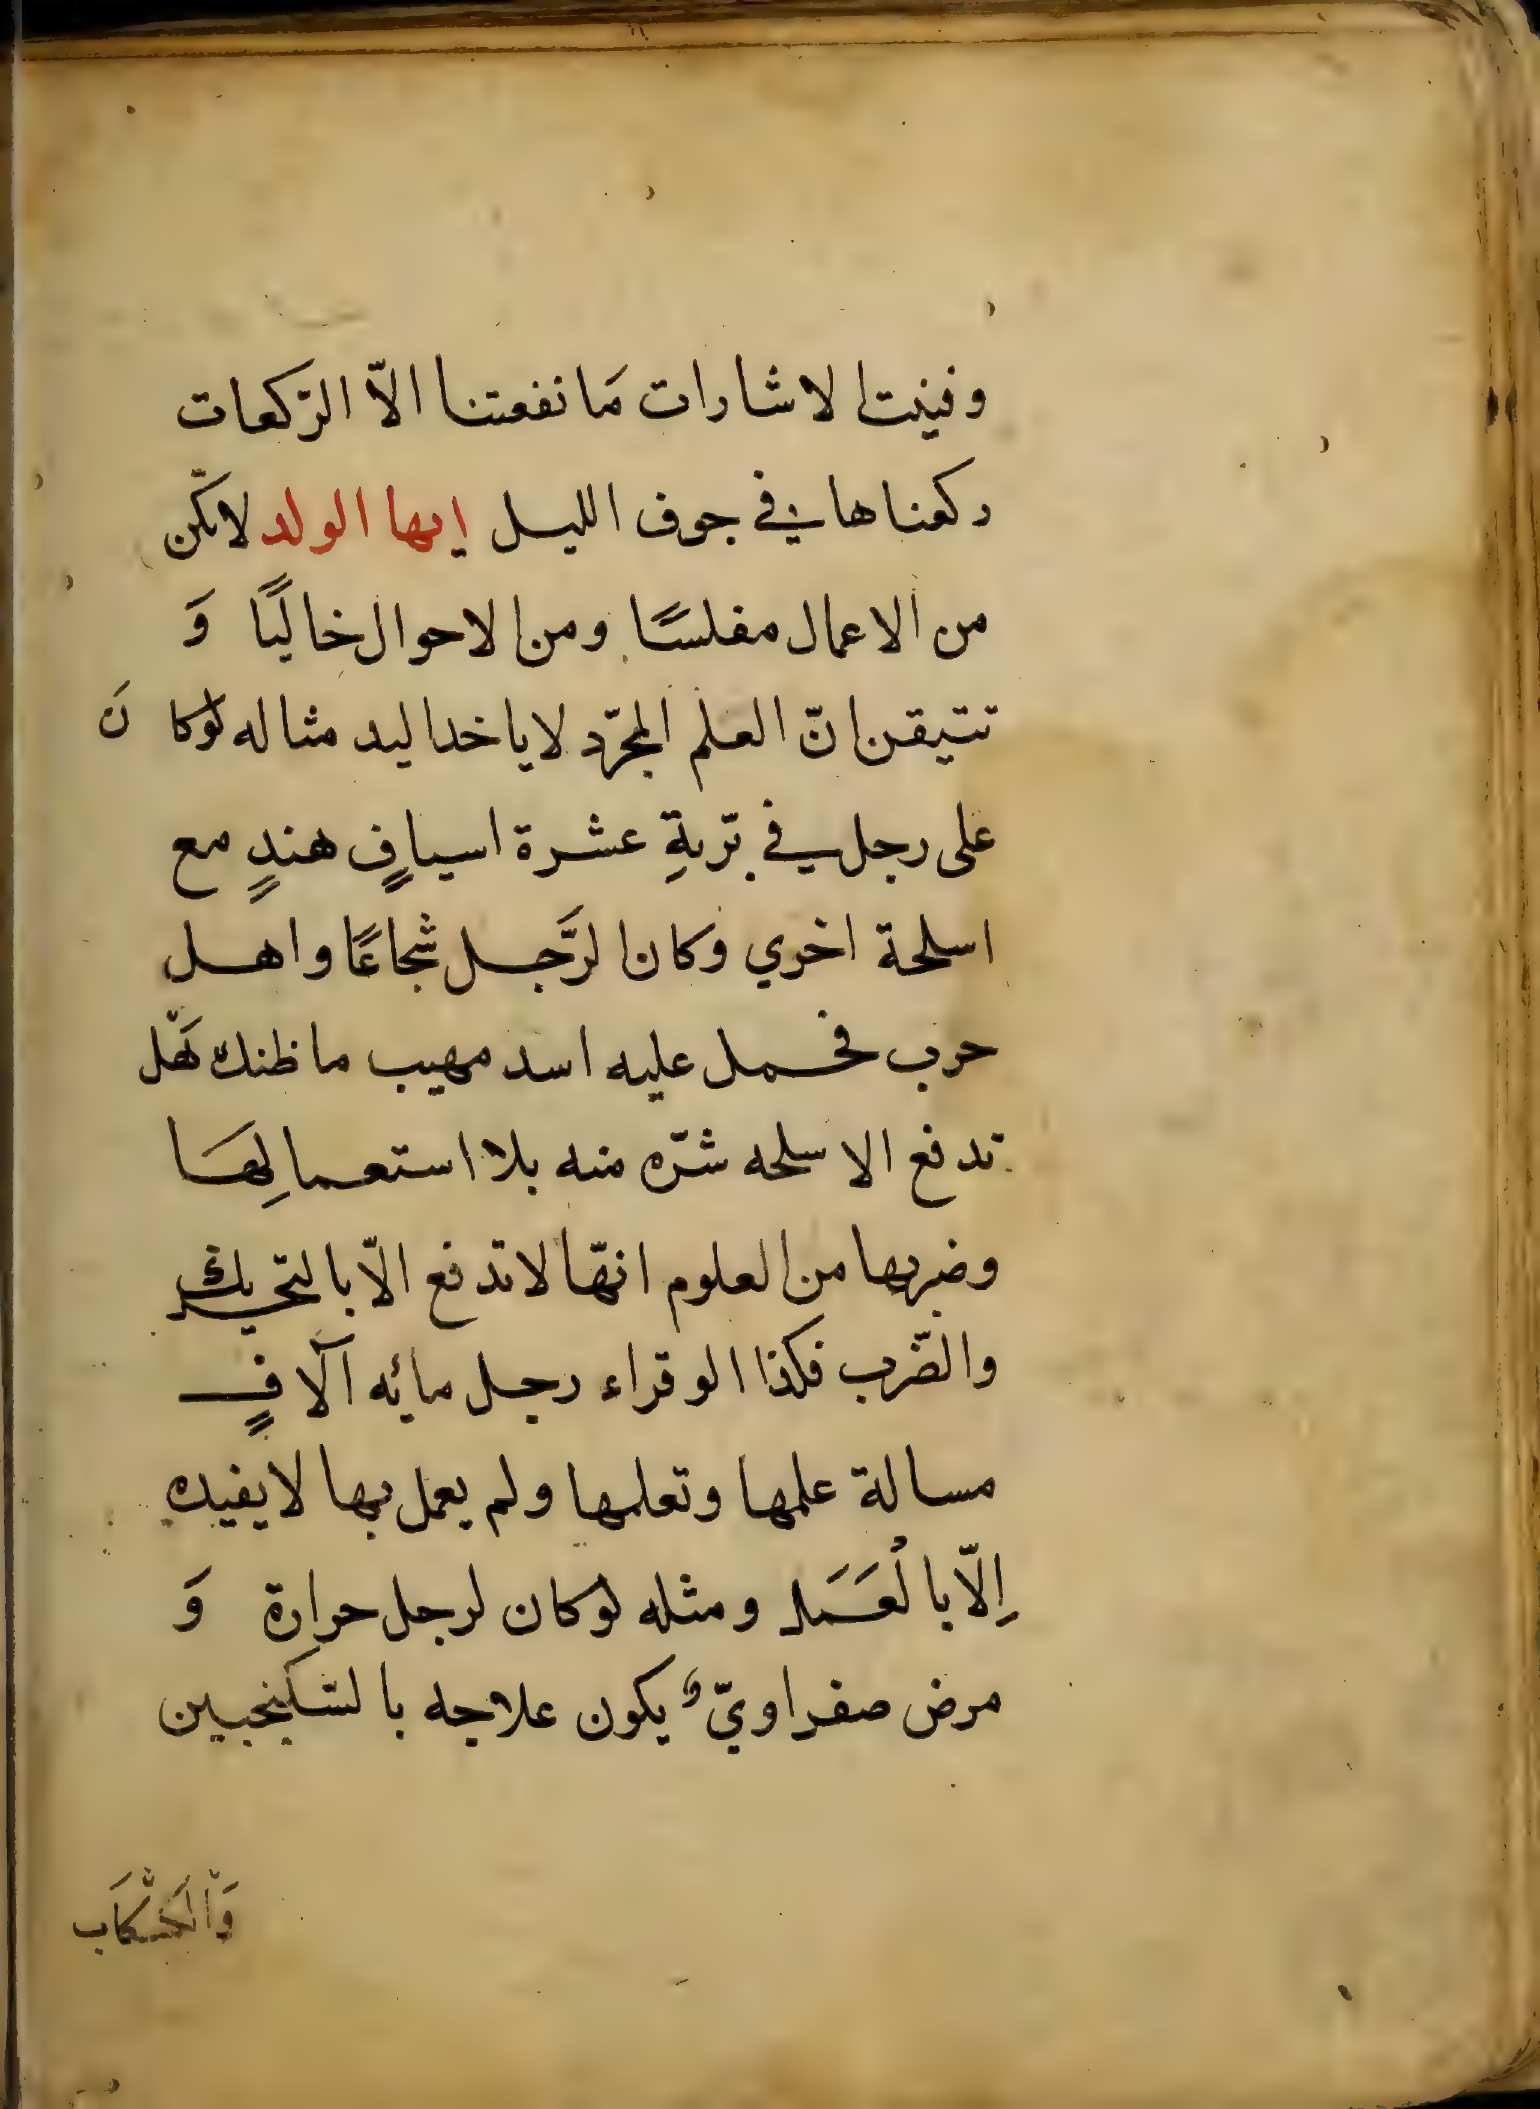 وفنيت الاشارات مَا نفعتنا الاّ الرّكعات
ركعناها في جوف الليل ايها الولد لا تكن
من الاعمال مفلسًا ومن الاحوال خاليًا وَ
تتيقن انّ العلم المجرّد لا ياخد اليد مثاله لوكانَ
على رجل في برّيةِ عشرة اسيافٍ هندٍ مع
اسلحة اخري وكان الرَّجل شجاعًا واهل
حرب فحمل عليه اسد مهيب ما ظنك هَل
تدفع الاسلحه شرّه منه بلا استعمالِهَا
وضربها من العلوم انهّا لا تدفع الاّ بالتحريك
والضّرب فكذا لو قراء رجل مائه آلافٍ
مسالة علمها وتعلمها ولم يعمل بها لا يفيده
اِلاّ بالْعَمَل ومثله لوكان لرجل حرارة وَ
مرض صفراويّ يكون علاجه بالسّكنجبين
وَالكَشْكَاب